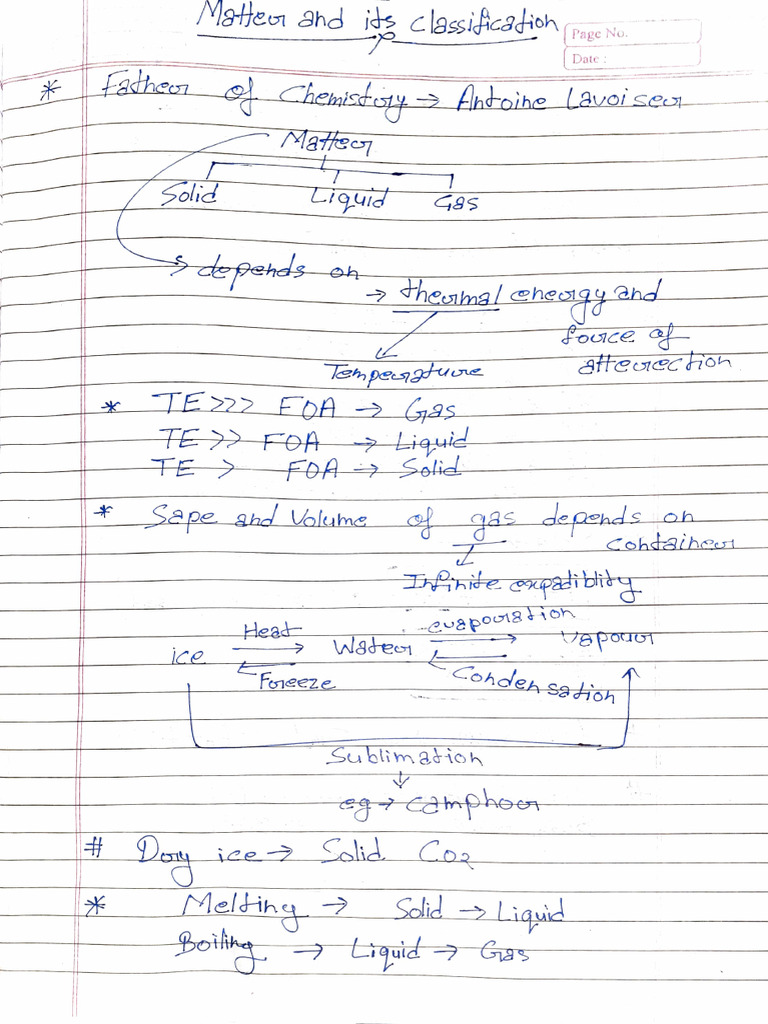 Matter and its classification
Page No.
Date :
* Father of Chemistry → Antoine Lavoiser
Matter
Solid Liquid Gas
→ depends on
→ thermal energy and
force of
attrection
Temperature
* TE >>> FOA → Gas
TE >> FOA → Liquid
TE > FOA → Solid
* Sape and Volume of gas depends on
container
Infinite expadiblity
ice Heat Water evaporation Vapour
Freeze Condensation
Sublimation
eg → Camphor
# Dry ice → Solid CO2
* Melting → Solid → Liquid
Boiling → Liquid → Gas